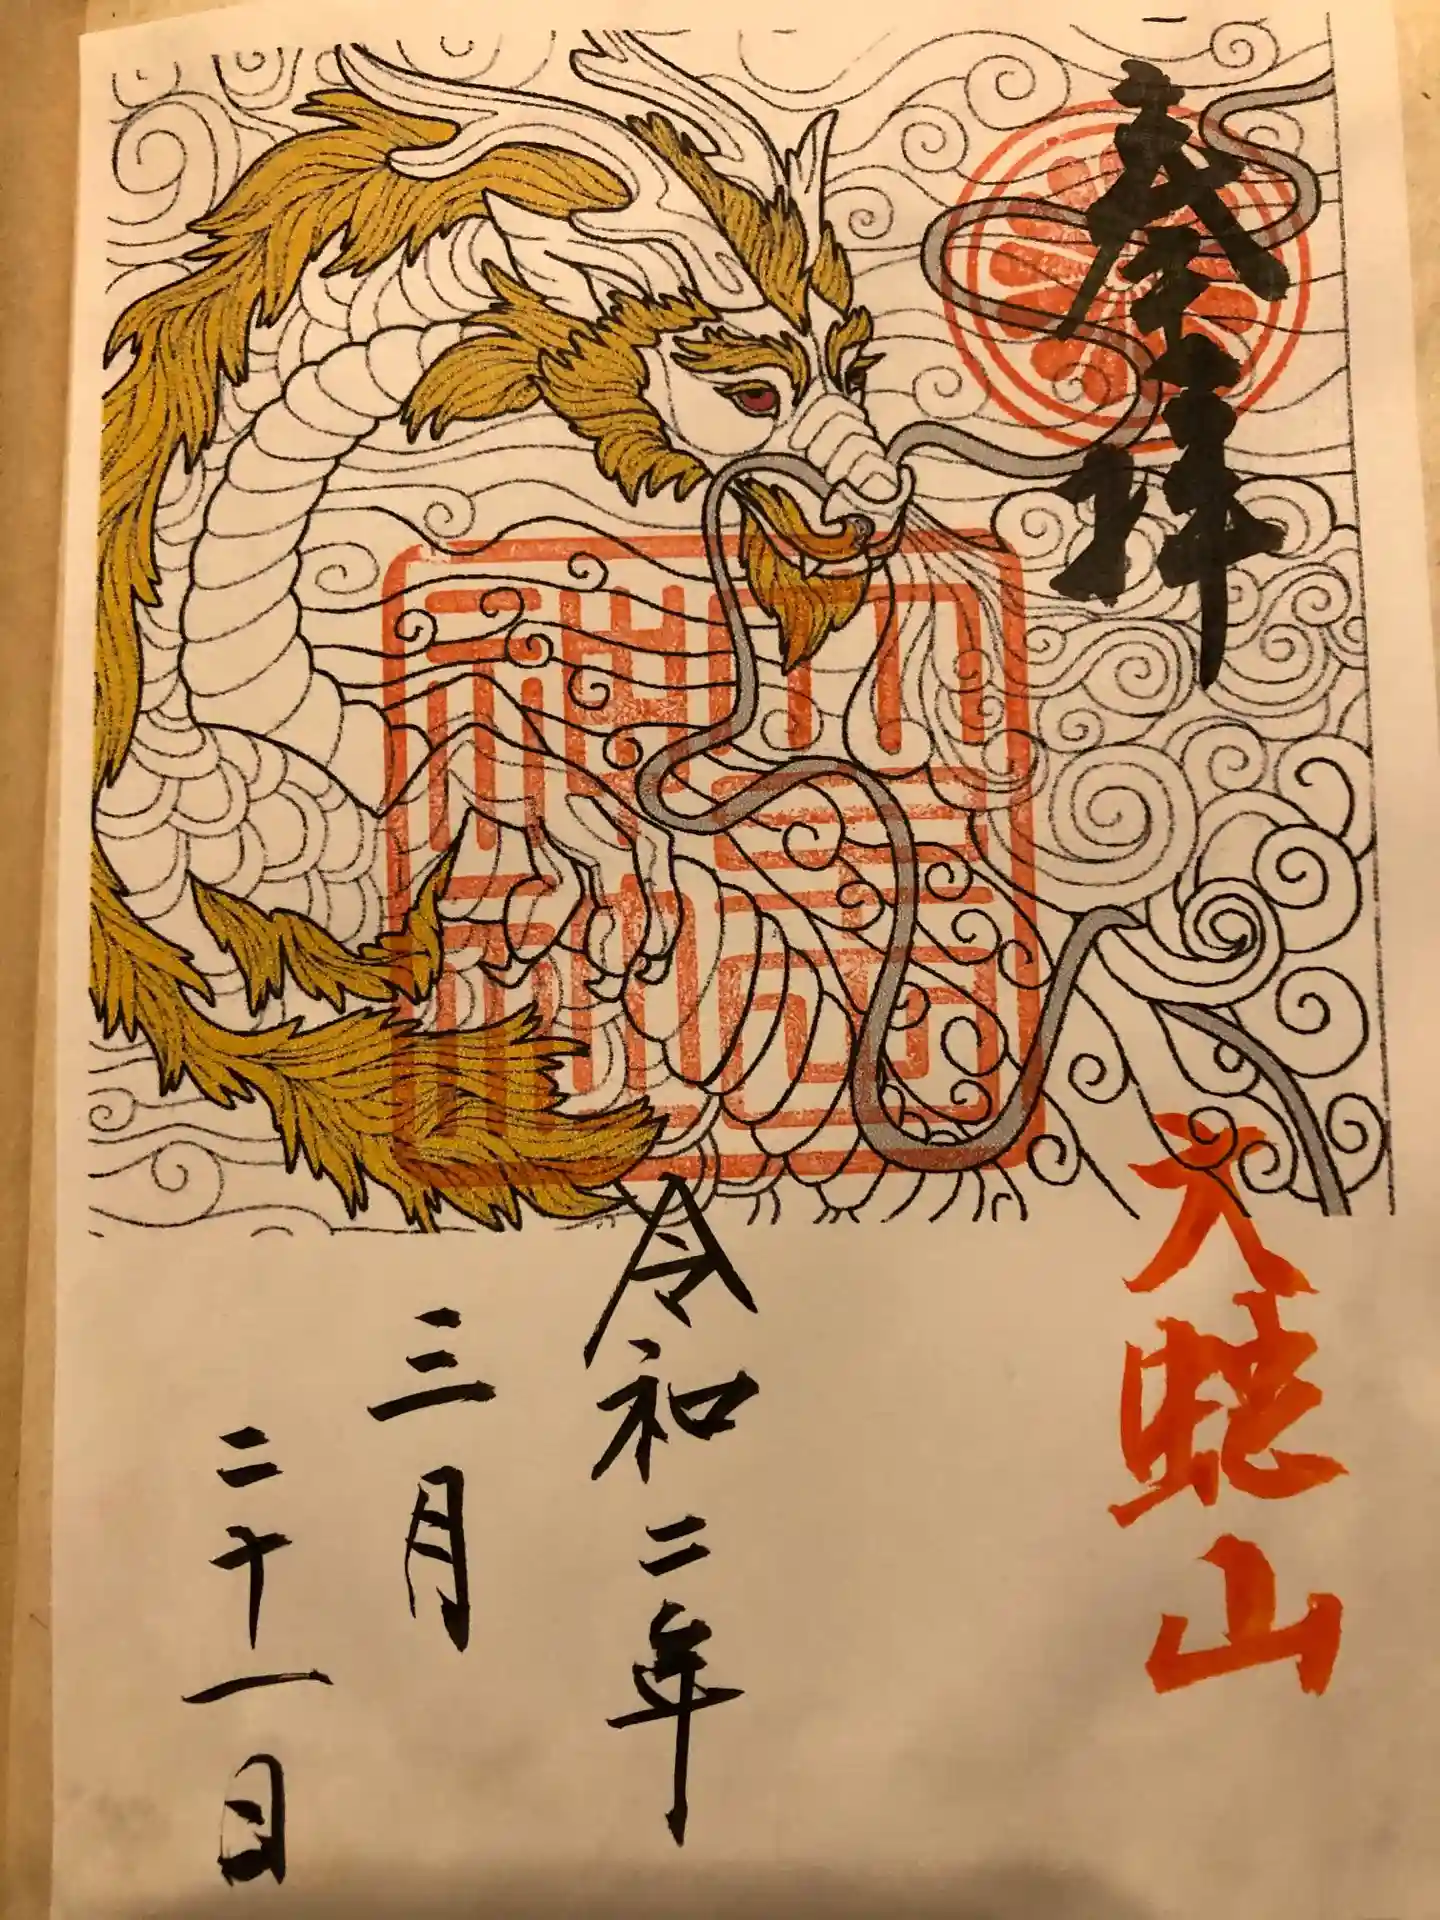 奉拝
大蛇山
令和二年
三月
二十一日